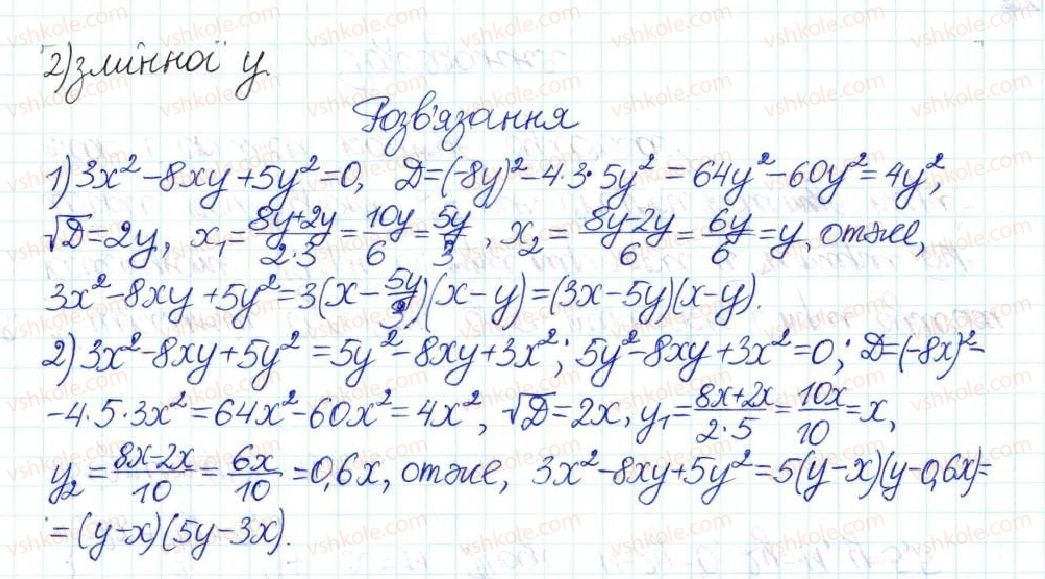 2) змінної y.
Розв'язання
1) 3x² - 8xy + 5y² = 0, D = (-8y)² - 4·3·5y² = 64y² - 60y² = 4y²,
√D = 2y, x₁ = (8y+2y)/(2·3) = 10y/6 = 5y/3, x₂ = (8y-2y)/6 = 6y/6 = y, отже,
3x² - 8xy + 5y² = 3(x - 5y/3)(x - y) = (3x - 5y)(x - y).
2) 3x² - 8xy + 5y² = 5y² - 8xy + 3x²; 5y² - 8xy + 3x² = 0; D = (-8x)² -
- 4·5·3x² = 64x² - 60x² = 4x², √D = 2x, y₁ = (8x+2x)/(2·5) = 10x/10 = x,
y₂ = (8x-2x)/10 = 6x/10 = 0,6x, отже, 3x² - 8xy + 5y² = 5(y - x)(y - 0,6x) =
= (y - x)(5y - 3x).
vshkole.com